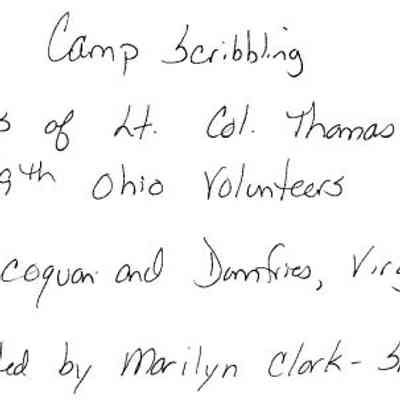 Camp Scribbling
s of Lt. Col. Thomas
9th Ohio Volunteers
coquan and Dumfries, Virg
ded by Marilyn Clark-S